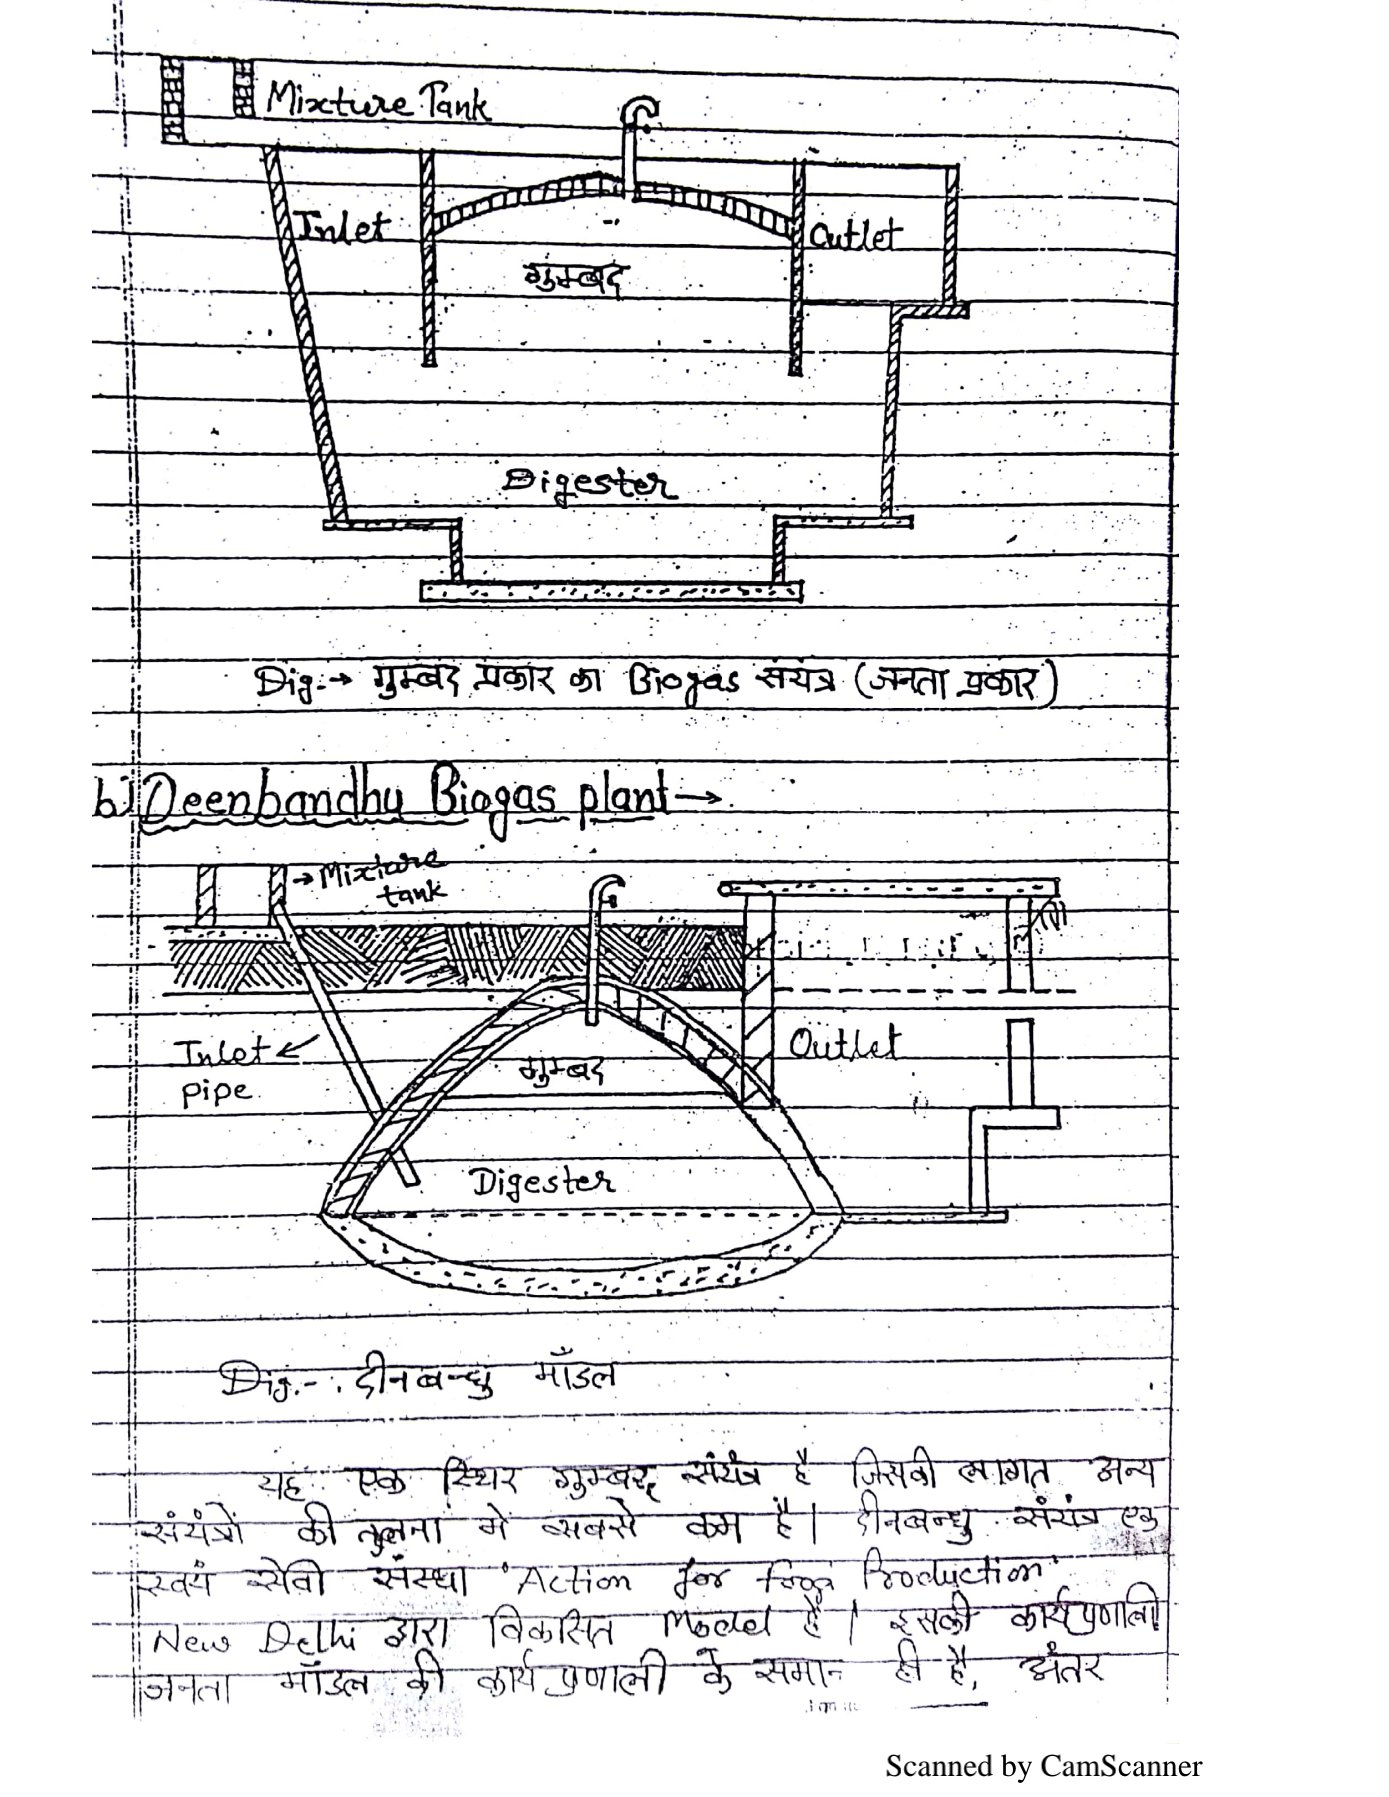 Mixture Tank
Inlet
Outlet
गुम्बद
Digester
Dig.→ गुम्बद प्रकार का Biogas संयंत्र (जनता प्रकार)
b) Deenbandhu Biogas plant →
→ Mixture
tank
Inlet
pipe
Outlet
गुम्बद
Digester
Dig.- दीनबन्धु मॉडल
यह एक स्थिर गुम्बद संयंत्र है जिसकी लागत अन्य
संयंत्रों की तुलना में सबसे कम है। दीनबन्धु संयंत्र एक
स्वयं सेवी संस्था 'Action for Food Production'
New Delhi द्वारा विकसित Model है। इसकी कार्यप्रणाली
जनता मॉडल की कार्यप्रणाली के समान ही है, अंतर
Scanned by CamScanner